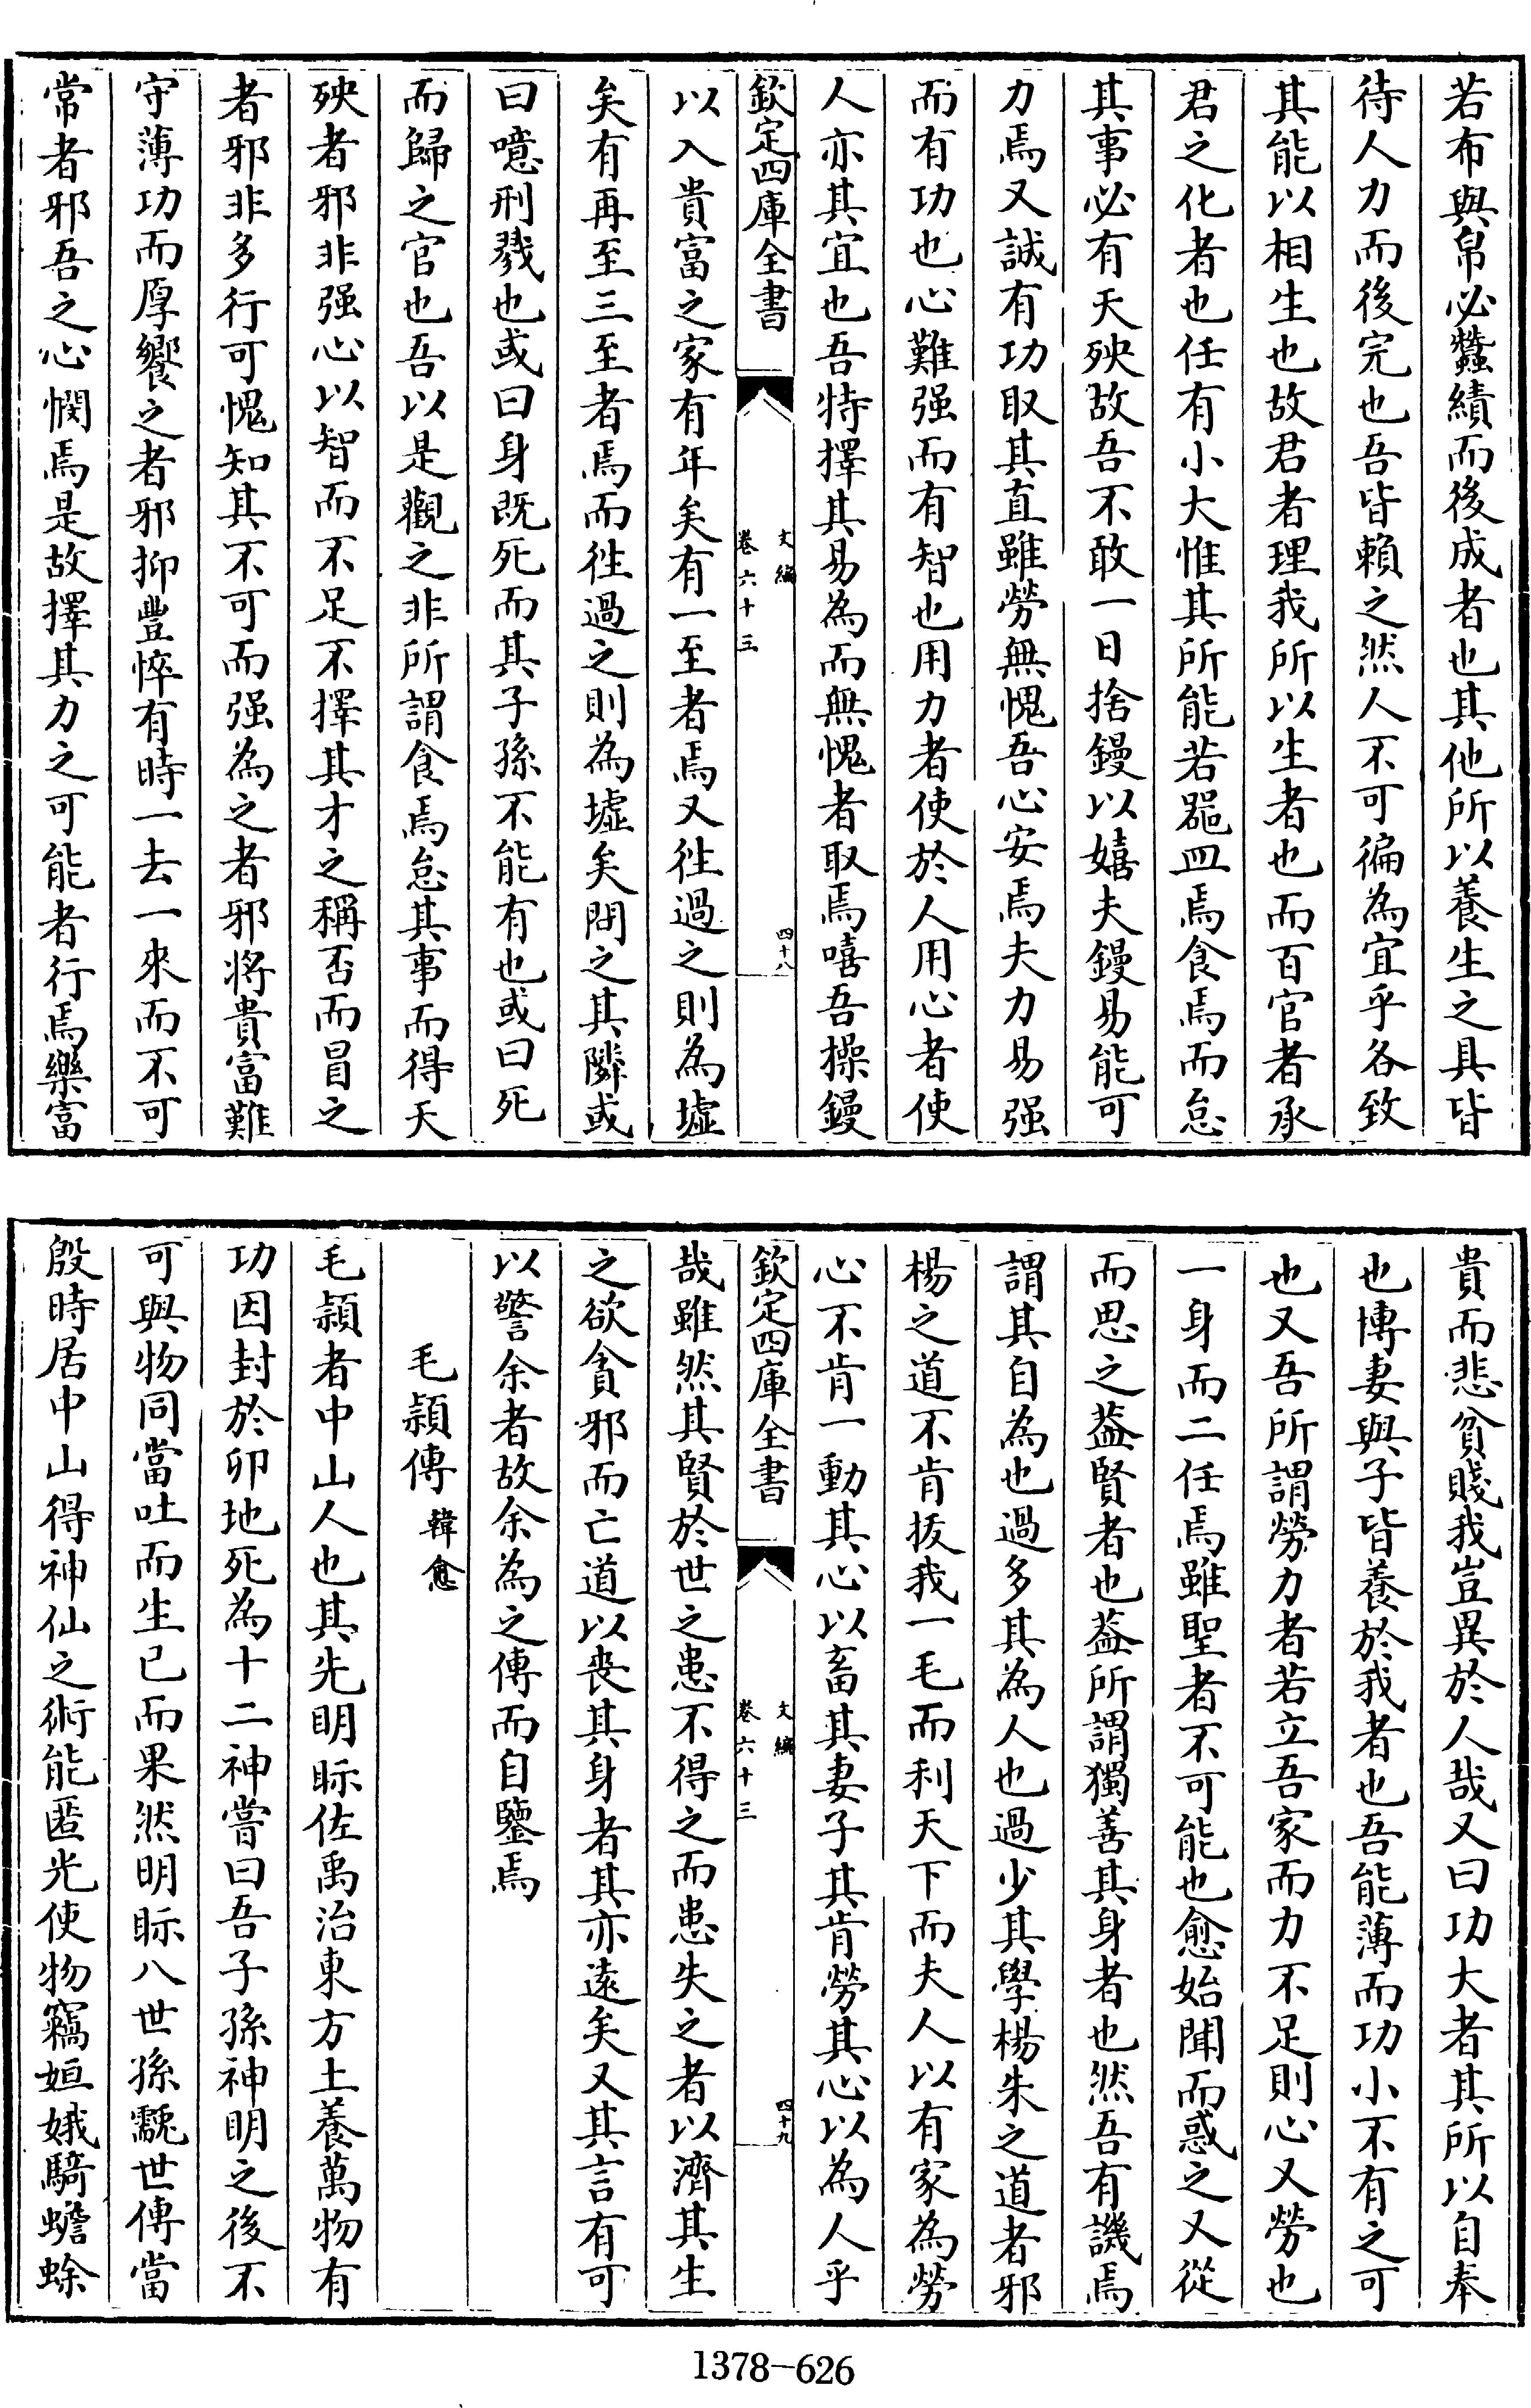 若布與帛必蠶績而後成者也其他所以養生之具皆
待人力而後完也吾皆賴之然人不可徧為宜乎各致
其能以相生也故君者理我所以生者也而百官者承
君之化者也任有小大惟其所能若器皿焉食焉而怠
其事必有天殃故吾不敢一日捨鏝以嬉夫鏝易能可
力焉又誠有功取其直雖勞無愧吾心安焉夫力易强
而有功也心難强而有智也用力者使於人用心者使
人亦其宜也吾特擇其易為而無愧者取焉嘻吾操鏝
欽定四庫全書
文編
卷六十三
四十八
以入貴富之家有年矣有一至者焉又徃過之則為墟
矣有再至三至者焉而徃過之則為墟矣問之其隣或
曰噫刑戮也或曰身既死而其子孫不能有也或曰死
而歸之官也吾以是觀之非所謂食焉怠其事而得天
殃者邪非强心以智而不足不擇其才之稱否而冒之
者邪非多行可愧知其不可而强為之者邪將貴富難
守薄功而厚饗之者邪抑豐悴有時一去一來而不可
常者邪吾之心憫焉是故擇其力之可能者行焉樂富
貴而悲貧賤我豈異於人哉又曰功大者其所以自奉
也博妻與子皆養於我者也吾能薄而功小不有之可
也又吾所謂勞力者若立吾家而力不足則心又勞也
一身而二任焉雖聖者不可能也愈始聞而惑之又從
而思之葢賢者也葢所謂獨善其身者也然吾有譏焉
謂其自為也過多其為人也過少其學楊朱之道者邪
楊之道不肯拔我一毛而利天下而夫人以有家為勞
心不肯一動其心以畜其妻子其肯勞其心以為人乎
欽定四庫全書
文編
卷六十三
四十九
哉雖然其賢於世之患不得之而患失之者以濟其生
之欲貪邪而亡道以丧其身者其亦遠矣又其言有可
以警余者故余為之傳而自鑒焉
毛穎傳 韓愈
毛穎者中山人也其先明眎佐禹治東方土養萬物有
功因封於卯地死為十二神嘗曰吾子孫神明之後不
可與物同當吐而生已而果然明眎八世孫䨲世傳當
殷時居中山得神仙之術能匿光使物竊姮娥騎蟾蜍
1378-626